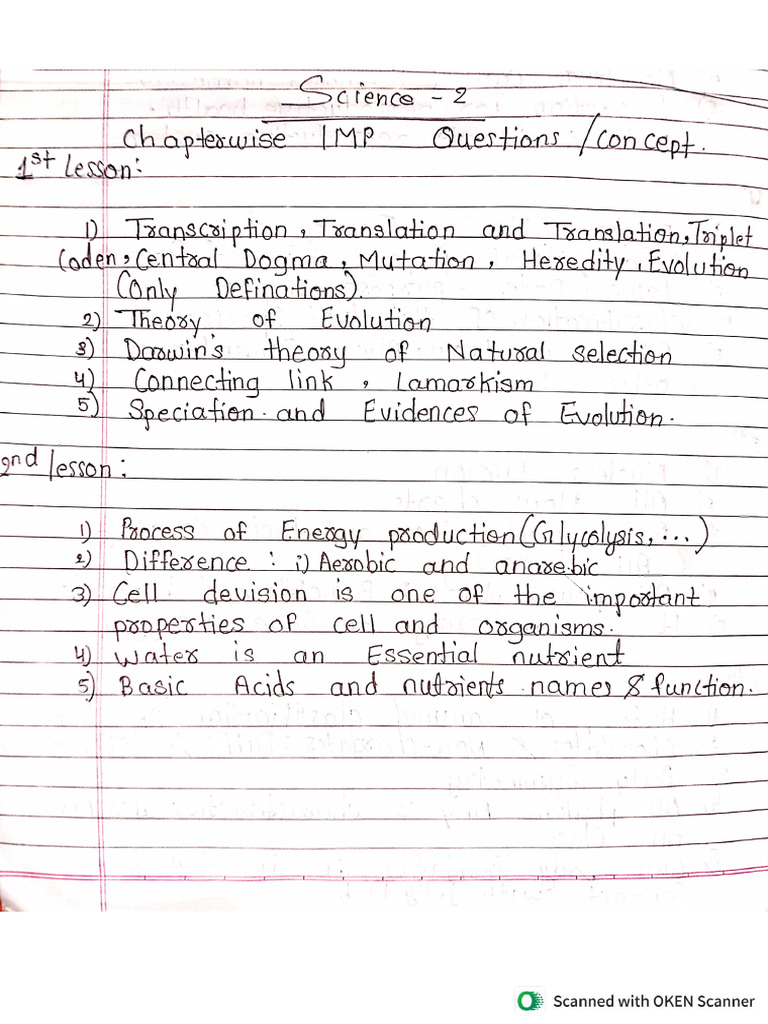 Science - 2
Chapterwise IMP Questions / concept.
1st lesson:
1) Transcription, Translation and Translation, Triplet
Coden, Central Dogma, Mutation, Heredity, Evolution
(Only Definations).
2) Theory of Evolution
3) Darwin's theory of Natural selection
4) Connecting link, Lamarkism
5) Speciation and Evidences of Evolution.
2nd lesson:
1) Process of Energy production (Glycolysis, ...)
2) Difference : i) Aerobic and anarebic
3) Cell devision is one of the important
properties of cell and organisms.
4) Water is an Essential nutrient
5) Basic Acids and nutrients names & function.
Scanned with OKEN Scanner